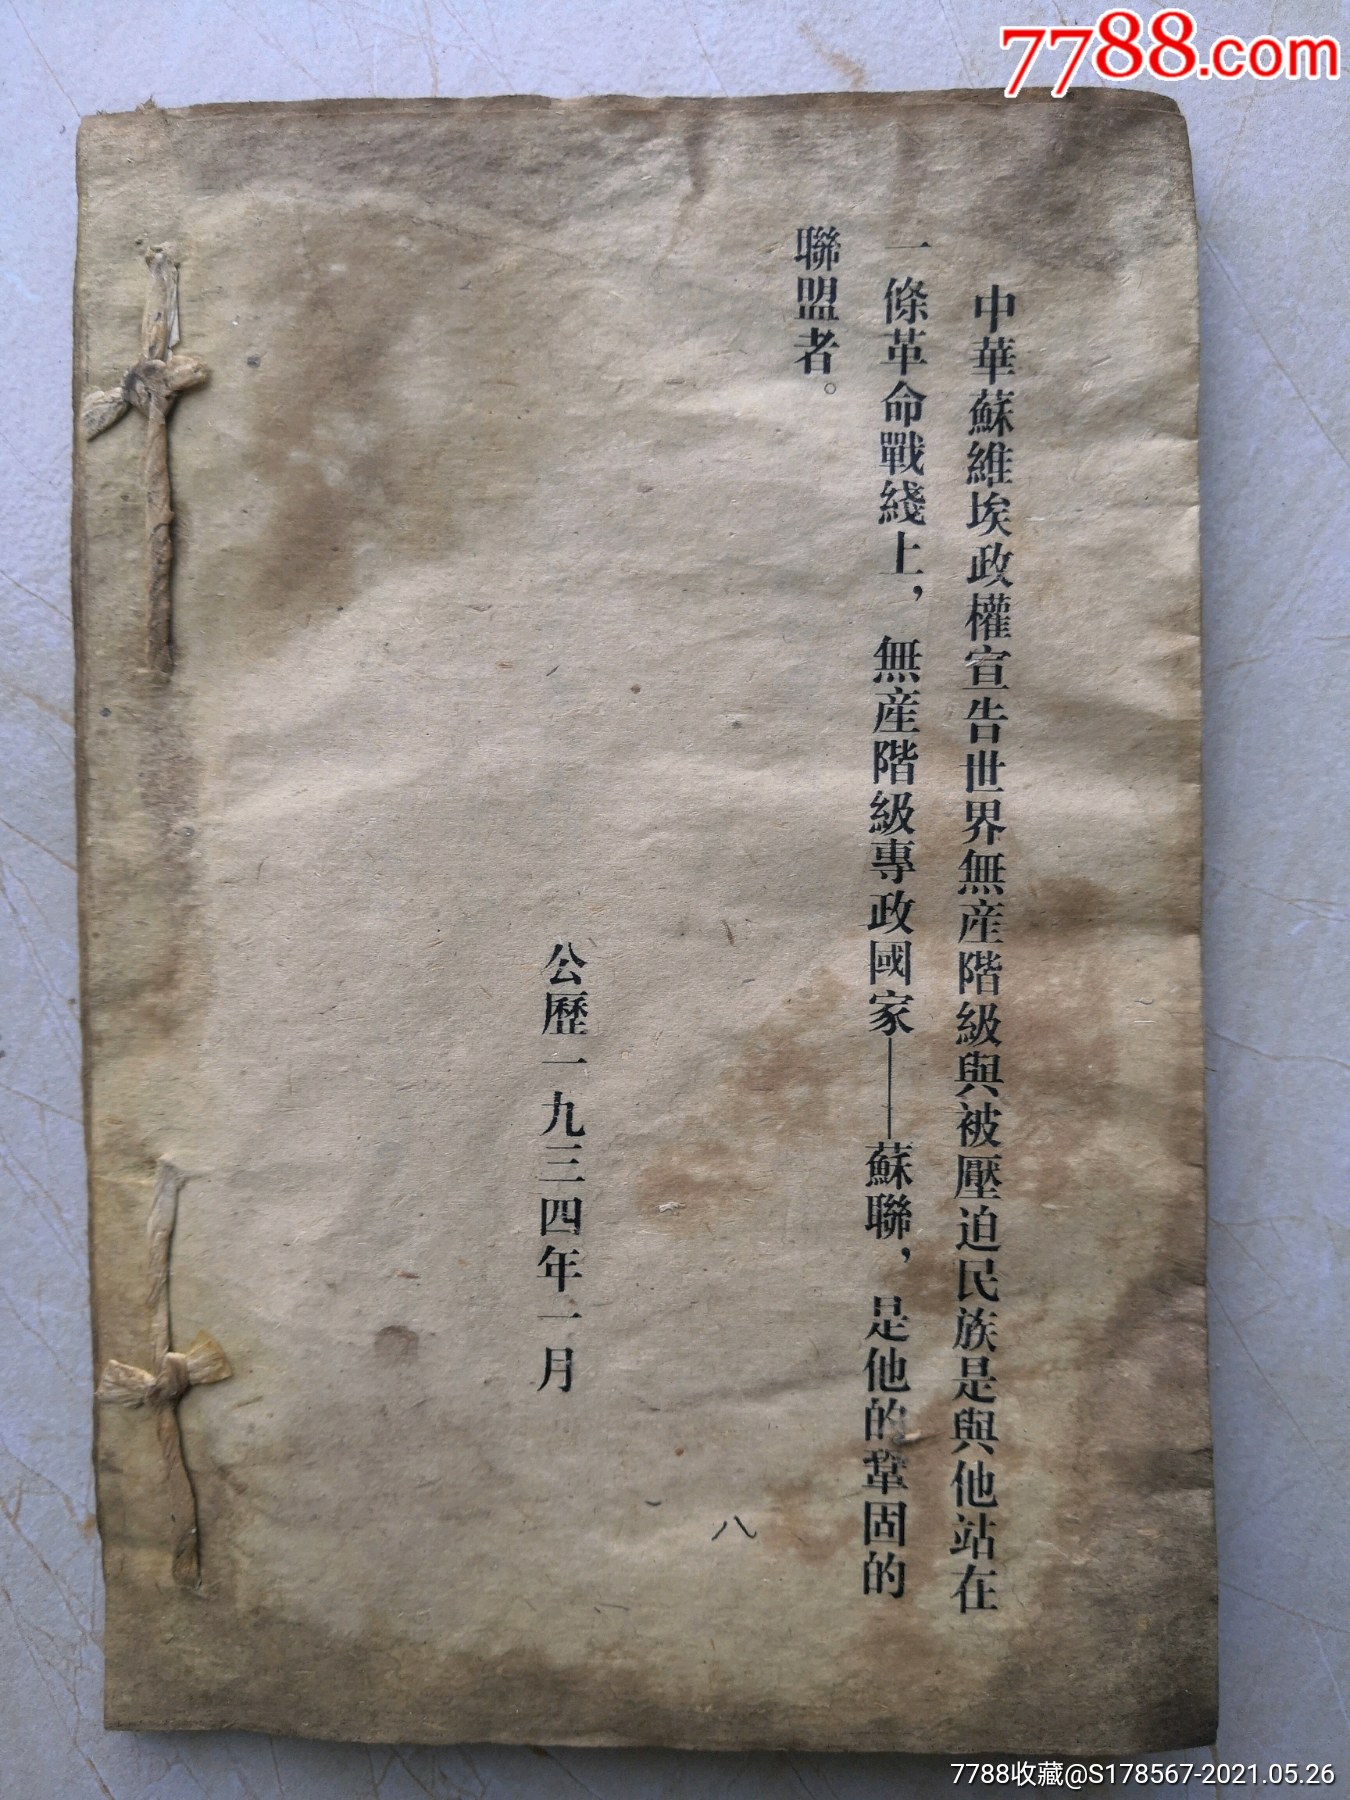 7788.com
中華蘇維埃政權宣告世界無産階級與被壓迫民族是與他站在
一條革命戰綫上，無産階級專政國家——蘇聯，是他的鞏固的
聯盟者。
公歷一九三四年一月
八
7788收藏@S178567-2021.05.26